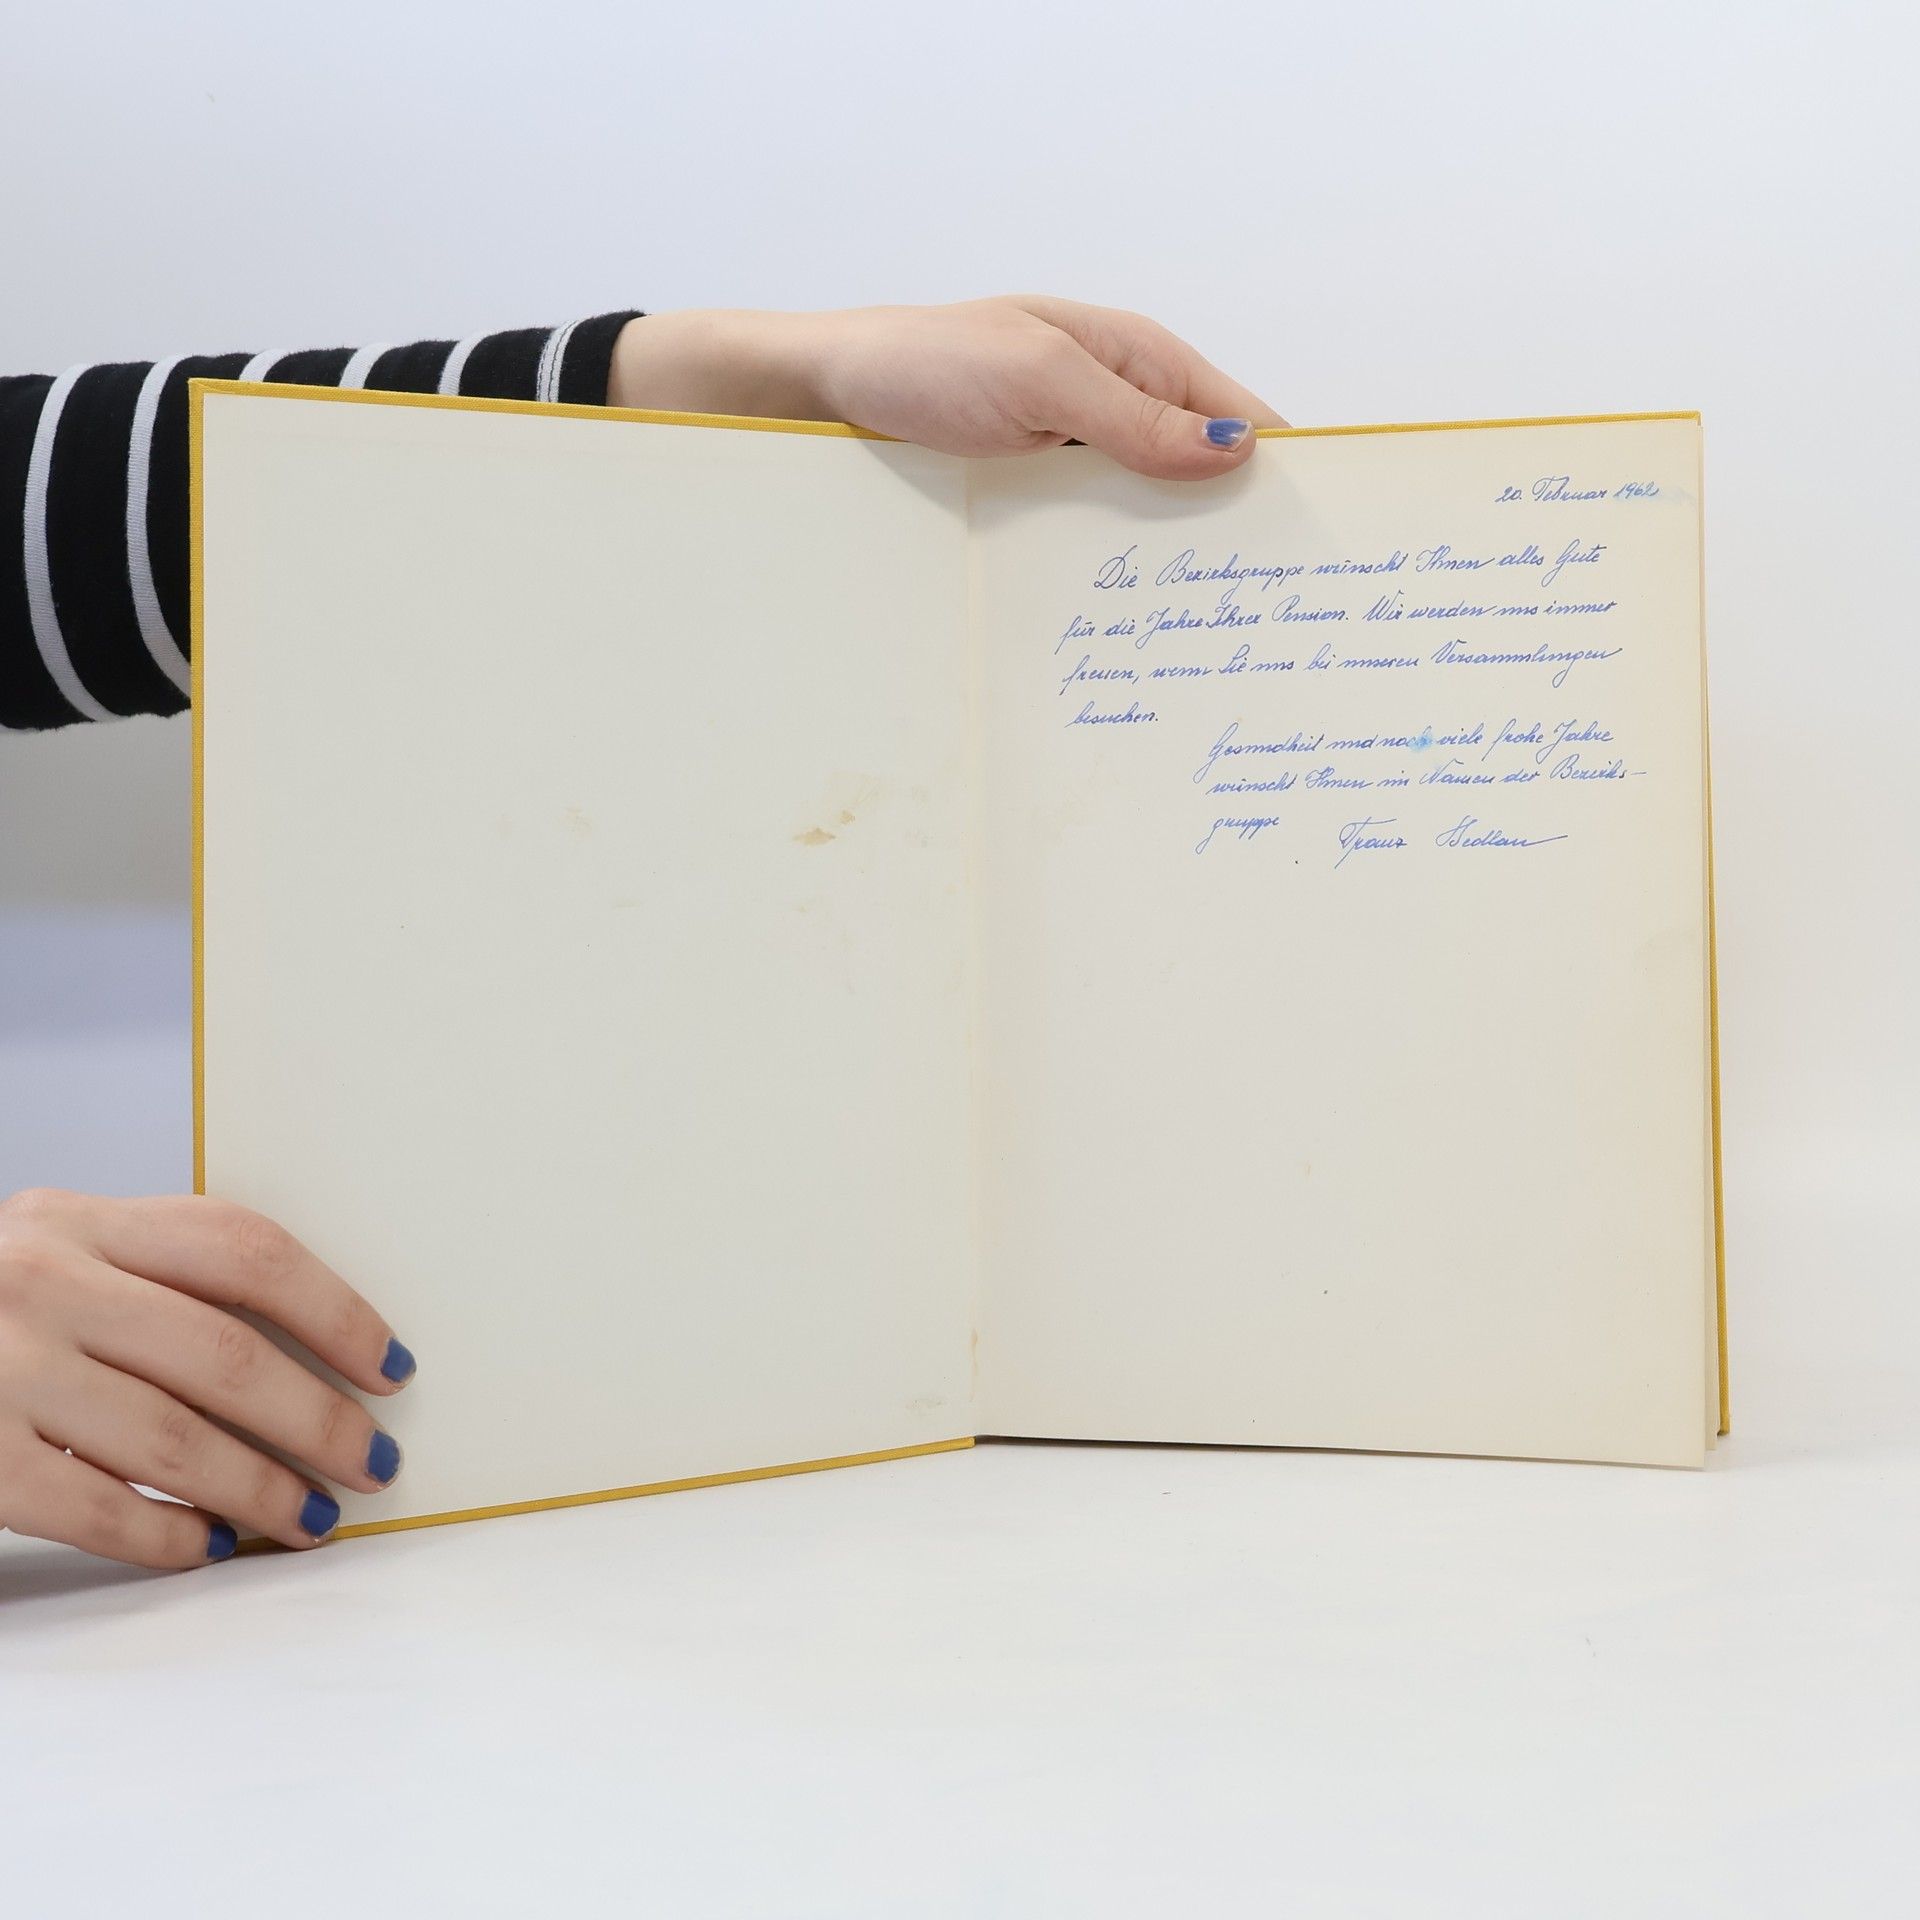 20. Februar 1962
Die Bezirksgruppe wünscht Ihnen alles Gute
für die Jahre Ihrer Pension. Wir werden uns immer
freuen, wenn Sie uns bei unseren Versammlungen
besuchen.
Gesundheit und noch viele frohe Jahre
wünscht Ihnen im Namen der Bezirks-
gruppe
Franz